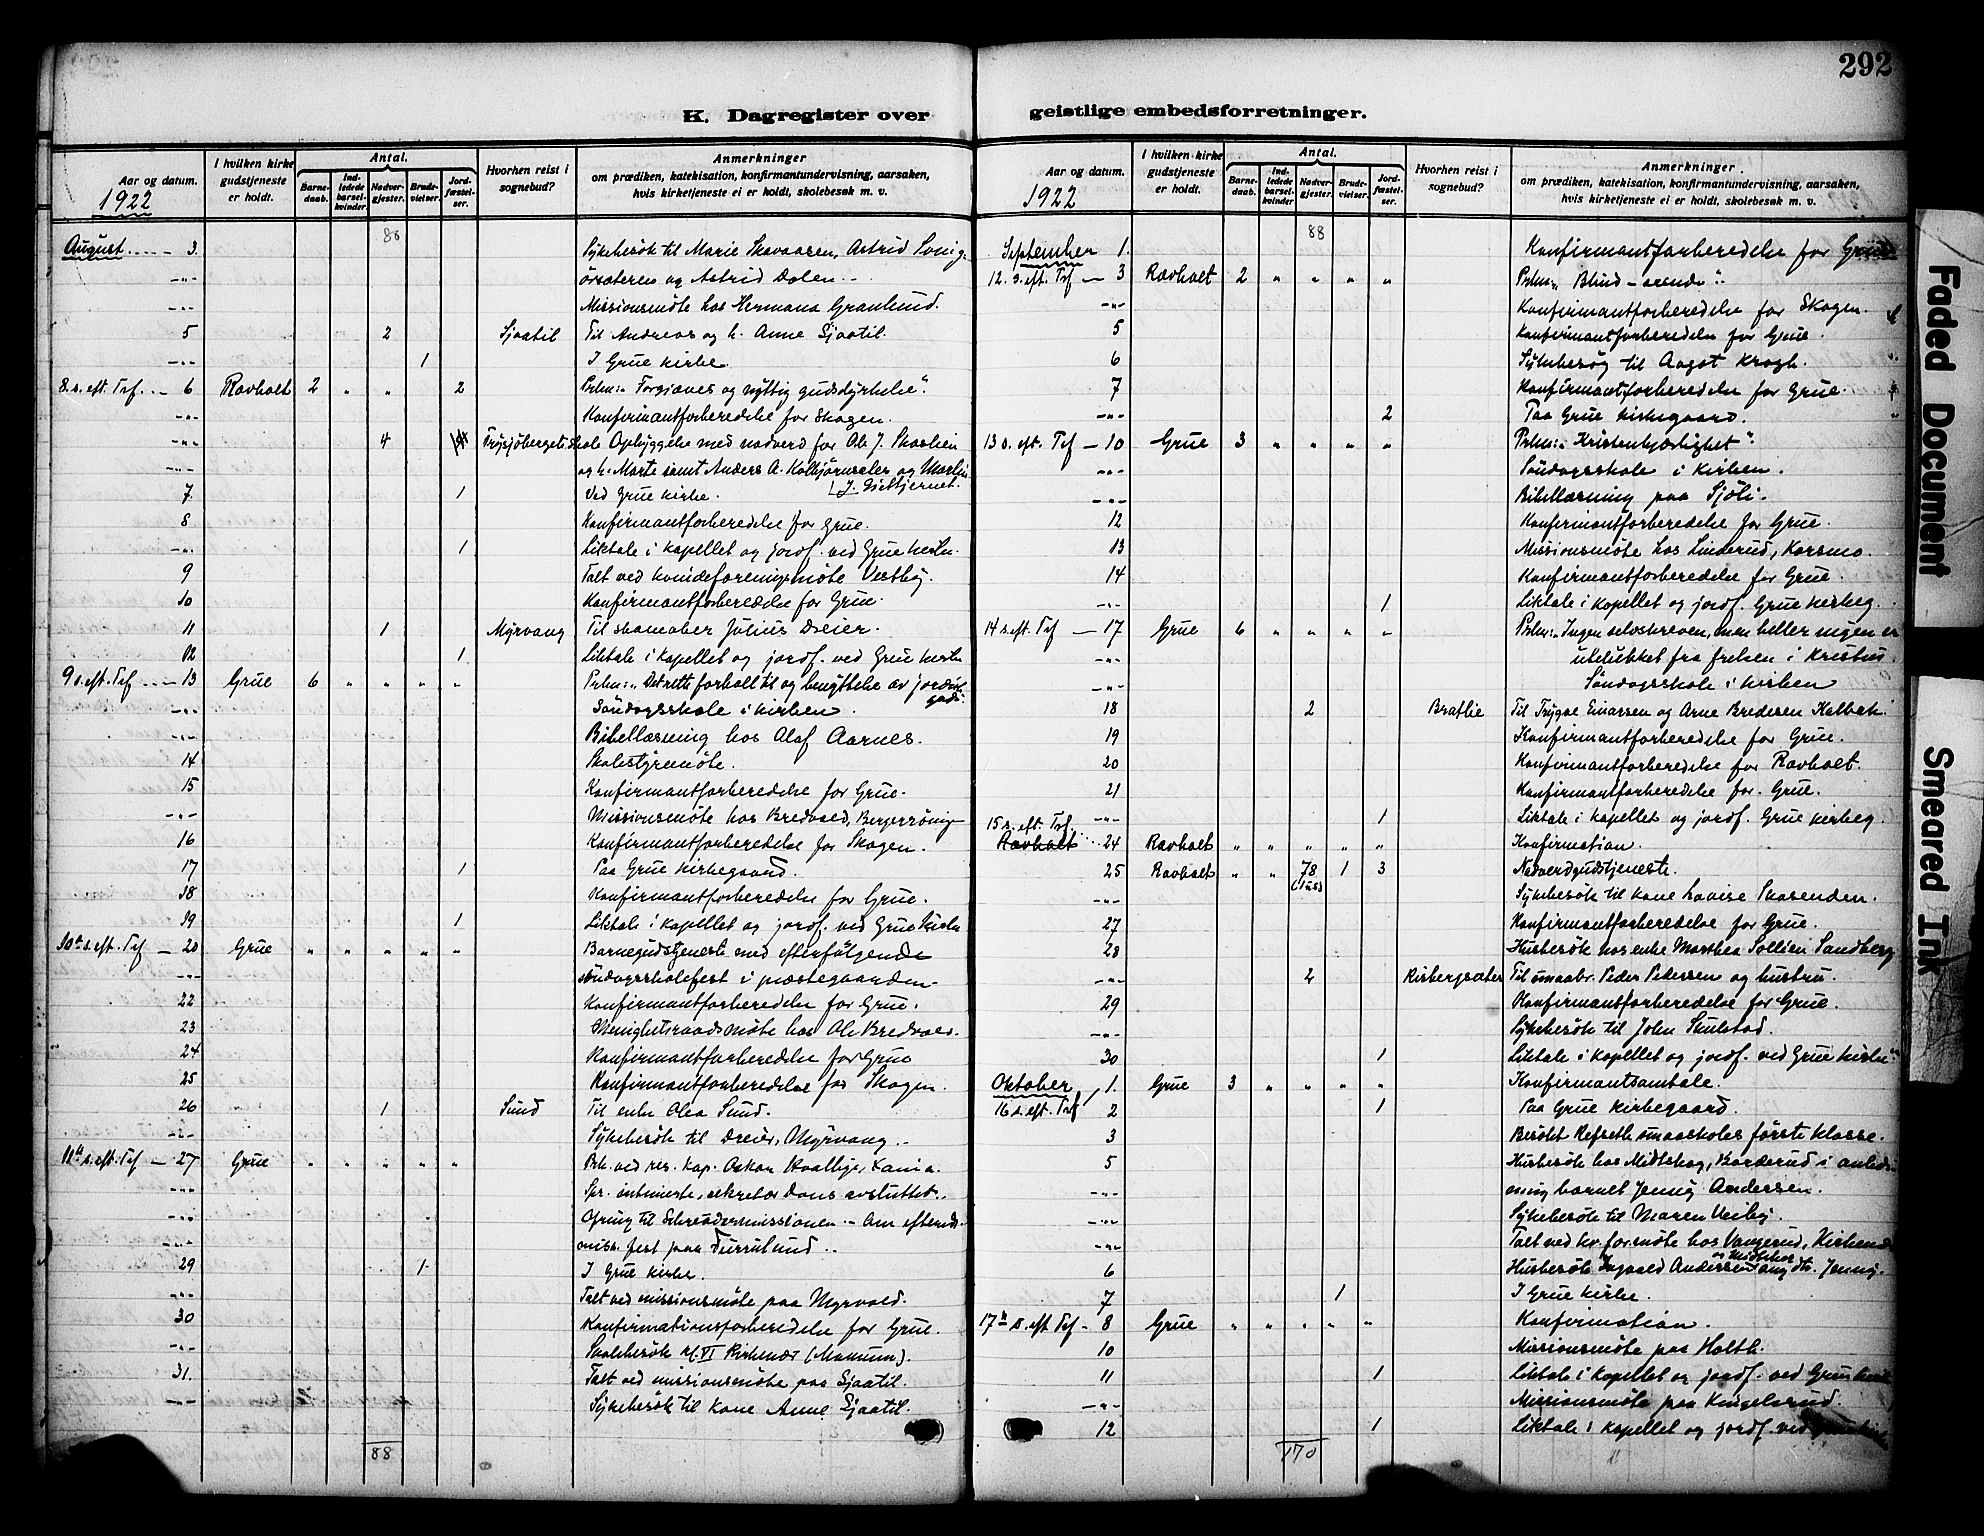 292
K. Dagregister over
geistlige embedsforretninger.
Aar og datum.
1922
I hvilken kirke gudstjeneste er holdt.
Antal.
Barnedaab.
Indledede barselkvinder
Nadvergjester.
Brudevielser.
Jordfæstelser.
Hvorhen reist i sognebud?
Anmerkninger
om prædiken, katekisation, konfirmantundervisning, aarsaken,
hvis kirketjeneste ei er holdt, skolebesøk m. v.
80
August 3. Sykebesök til Marie Skavaasen, Astrid
-"- og Astrid Dalen
-"- Missionsmöte hos Hermana Granlund.
5 2 Sjaatil Til Andreas og h. Anne Sjaatil.
-"- 1 I Grue kirke.
8. s. eft. Tref. 6 Ravholt 2 " " 2 Prkn: "Forgjæves og nyttig gudsdyrkelse".
-"- Konfirmantforberedelse for Skogen.
-"- 4 Opbyggelse med nadverd for Ole J.
og h. Marte samt Anders A. og Martin
7. 1 Ved Grue kirke.
8 Konfirmantforberedelse for Grue.
-"- 1 Liktale i kapellet og jordf. ved Grue kirke.
9 Talt ved kvindeforeningsmöte Vestby.
10 Konfirmantforberedelse for Grue.
11 1 Myrvang Til skomaker Julius Dreier.
12 1 Liktale i kapellet og jordf. ved Grue kirke
9 s. eft. Tref. 13 Grue 6 " " " " Prkn: "Det rette forhold til og benyttelse av jordisk
gods.
-"- Söndagsskole i kirken.
-"- Bibellæsning hos Olaf Aarnes.
14 Skolestyremöte.
15 Konfirmantforberedelse for Grue.
-"- Missionsmöte hos Bredvold,
16 Konfirmantforberedelse for Skogen.
17 1 Paa Grue kirkegaard.
18 Konfirmantforberedelse for Grue.
19 1 Liktale i kapellet og jordf. ved Grue kirke
10de s. eft. Tref 20 Grue " " " " Barnegudstjeneste med efterfölgende
-"- söndagsskolefest i præstegaarden.
22 Konfirmantforberedelse for Grue.
23 Menighetsraadsmöte hos Ole Bredvold.
24 Konfirmantforberedelse for Grue
25 Konfirmantforberedelse for Skogen.
26 1 Sund Til enke Olea Sund.
-"- Sykebesök til Dreier, Myrvang.
11te s. eft. Tref 27 Grue " " " " " Prk. ved res. kap. Oskar
-"-
-"- Ofring til
-"- miss. fest paa
29 1 I Grue kirke.
-"- Talt ved missionsmöte paa Myrvold.
30 Konfirmationsforberedelse for Grue.
-"- Skolebesök kl. VI Kirkenær (Momum).
31. Talt ved missionsmöte paa Sjaatil.
-"- Sykebesök til kone Anne Sjaatil.
88
Aar og datum.
1922
I hvilken kirke gudstjeneste er holdt.
Antal.
Barnedaab.
Indledede barselkvinder
Nadvergjester.
Brudevielser.
Jordfæstelser.
Hvorhen reist i sognebud?
Anmerkninger.
om prædiken, katekisation, konfirmantundervisning, aarsaken,
hvis kirketjeneste ei er holdt, skolebesøk m. v.
88
September 1. Konfirmantforberedelse for Grue
12. s. eft. Tref 3 Ravholt 2 " " " " Prkn: "Blind – seende".
-"- Konfirmantforberedelse for Skogen.
5 Konfirmantforberedelse for Grue.
6 Sykebesög til Aagot Krogh.
7 Konfirmantforberedelse for Grue.
-"- 2 Paa Grue kirkegaard.
13 s. eft. Tref 10 Grue 3 " " " " Prkn: "Kristenkjærlighet".
-"- Söndagsskole i kirken.
-"- Bibellæsning paa Sjöli.
12 Konfirmantforberedelse for Grue.
13 Missionsmöte hos Linderud, Korsmo.
14 Konfirmantforberedelse for Grue.
-"- 1 Liktale i kapellet og jordf. Grue kirkeg.
14 s. eft. Tref 17 Grue 6 " " " " Prkn: "Ingen selvskreven, men heller ingen er
utelukket fra frelsen i Kristus.
-"- Söndagsskole i kirken
18 2 Bratlie Til Trygve Einarsen og Arne Bredesen
19 Konfirmantforberedelse for Grue.
20 Konfirmantforberedelse for Ravholt.
21 Konfirmantforberedelse for Grue.
-"- 1 Liktale i kapellet og jordf. Grue kirkeg.
15 s. eft. Tref
Ravholt 24 Ravholt " " " " " Konfirmation.
25 Ravholt " " 78 1 3 Nadverdgudstjeneste.
-"- Sykebesök til kone Lovise Skasenden.
27 Konfirmantforberedelse for Grue.
28 Husbesök hos enke Marthea Sollien Sandberg
-"- 2 Kirkergsæter Til smaabr. Peder Pedersen og hustru.
29 Konfirmantforberedelse for Grue.
-"- Sykebesök til John Skulstad.
30 1 Liktale i kapellet og jordf. ved Grue kirke
Oktober 1. Grue 3 " " " " Konfirmantsamtale.
16 s. eft. Tref 2 1 Paa Grue kirkegaard.
3 Besökt Refseth smaaskoles förste klasse.
5 Husbesök hos Midtskog, Borderud i anled-
-"- ning barnet Jenny Andersen.
-"- Sykebesök til Maren Veiby.
-"- Talt ved kv.for.möte hos Vangerud, Kirkenær
6 Husbesök Ingvald Andersen og Midtskog ang. dtr. Jenny.
7 1 I Grue kirke.
17de s. eft. Tref 8 Grue " " " " " Konfirmation.
10 Missionsmöte paa Holth.
11 1 Liktale i kapellet og jordf. ved Grue kirke
-"- Missionsmöte paa Kingelsrud.
12 1 Liktale i kapellet og jordf. ved
170
Faded Document
Smeared Ink